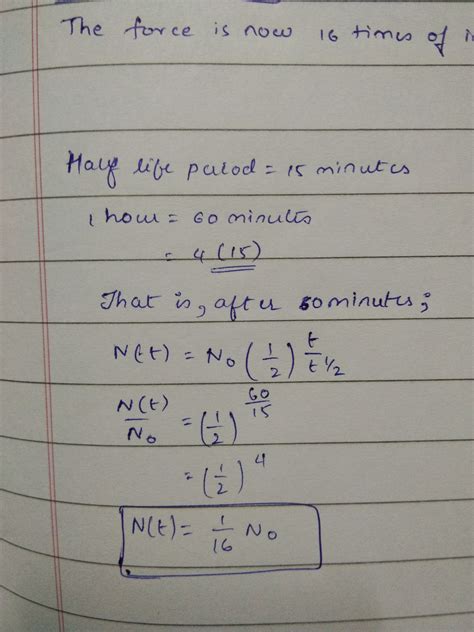 The force is now 16 times of i
Half life period = 15 minutes
1 hour = 60 minutes
= 4 (15)
That is, after 60 minutes;
N(t) = N₀ (1/2)^(t/t1/2)
N(t)/N₀ = (1/2)^(60/15)
= (1/2)^4
N(t) = 1/16 N₀